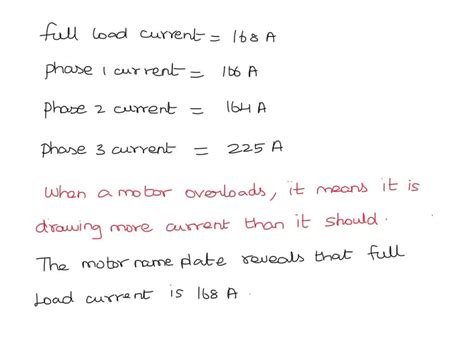 full load current = 168 A
phase 1 current = 166 A
phase 2 current = 164 A
phase 3 current = 225 A
When a motor overloads, it means it is
drawing more current than it should.
The motor name plate reveals that full
load current is 168 A.